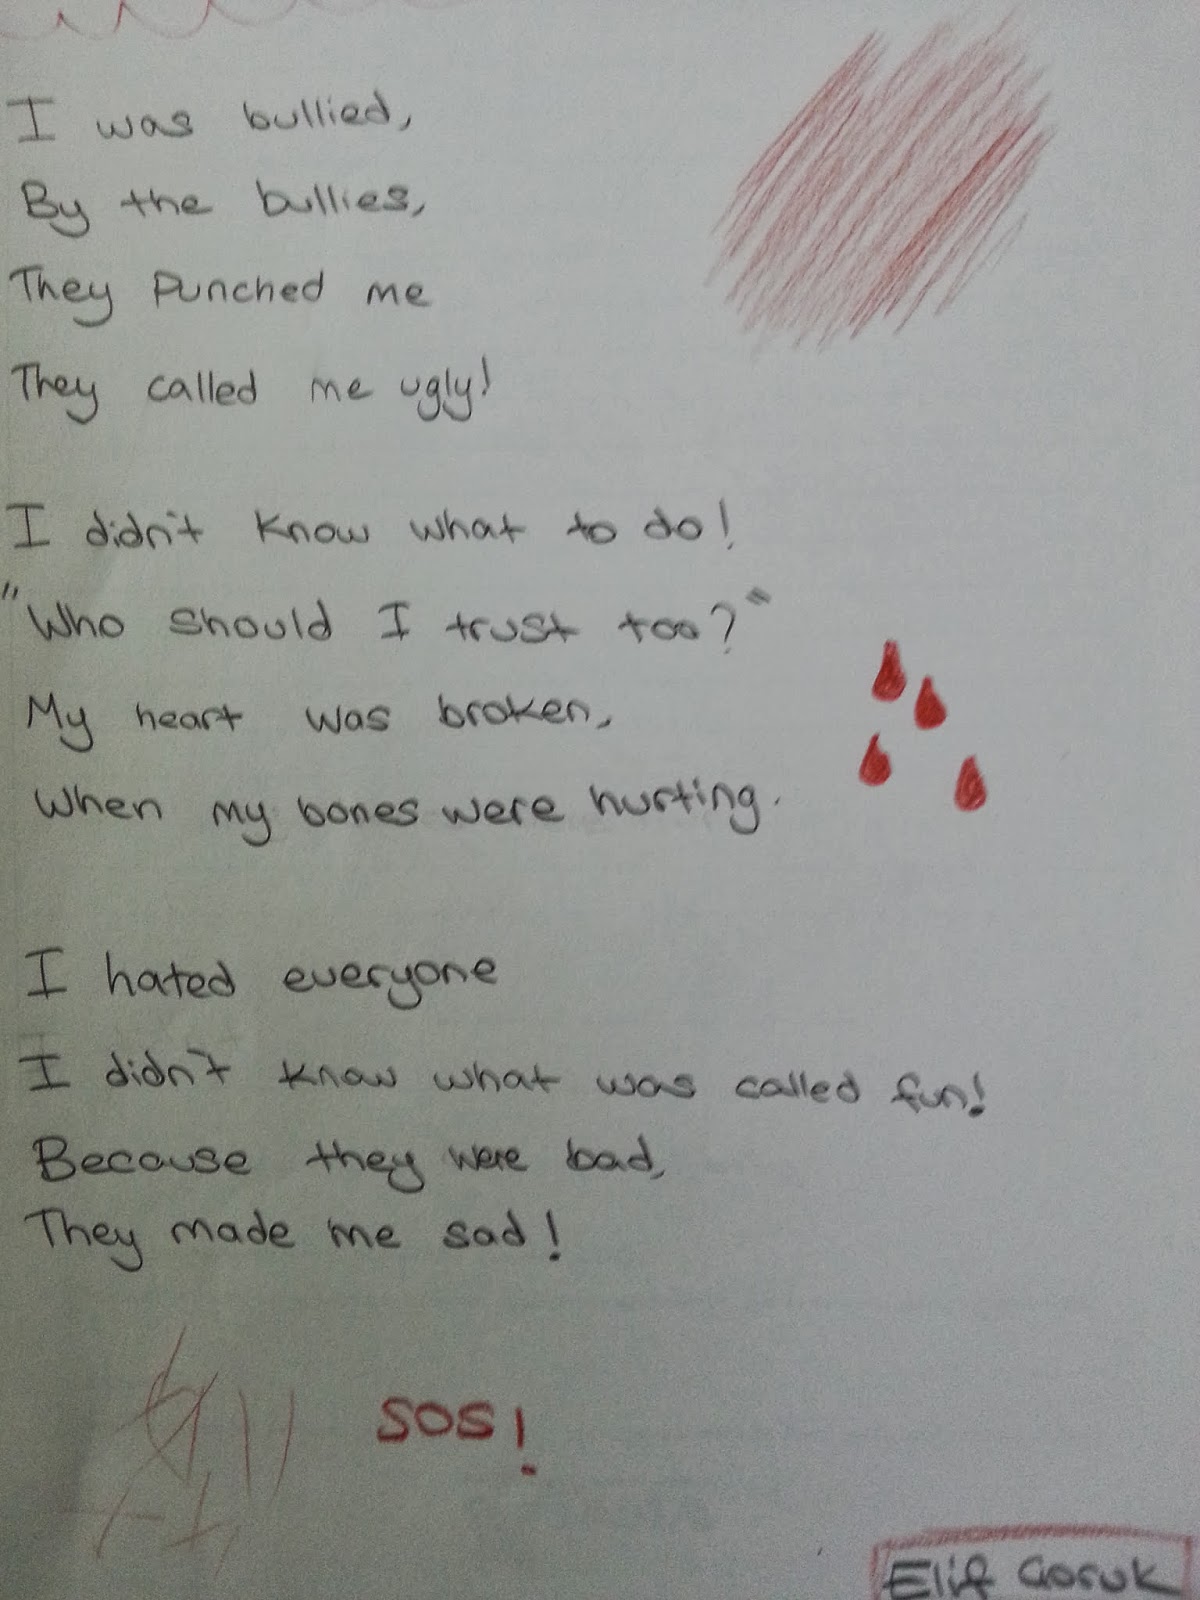 I was bullied,
By the bullies,
They Punched me
They called me ugly!
I didn't know what to do!
"Who should I trust too?"
My heart was broken,
When my bones were hurting.
I hated everyone
I didn't know what was called fun!
Because they were bad,
They made me sad!
SOS!
Elif